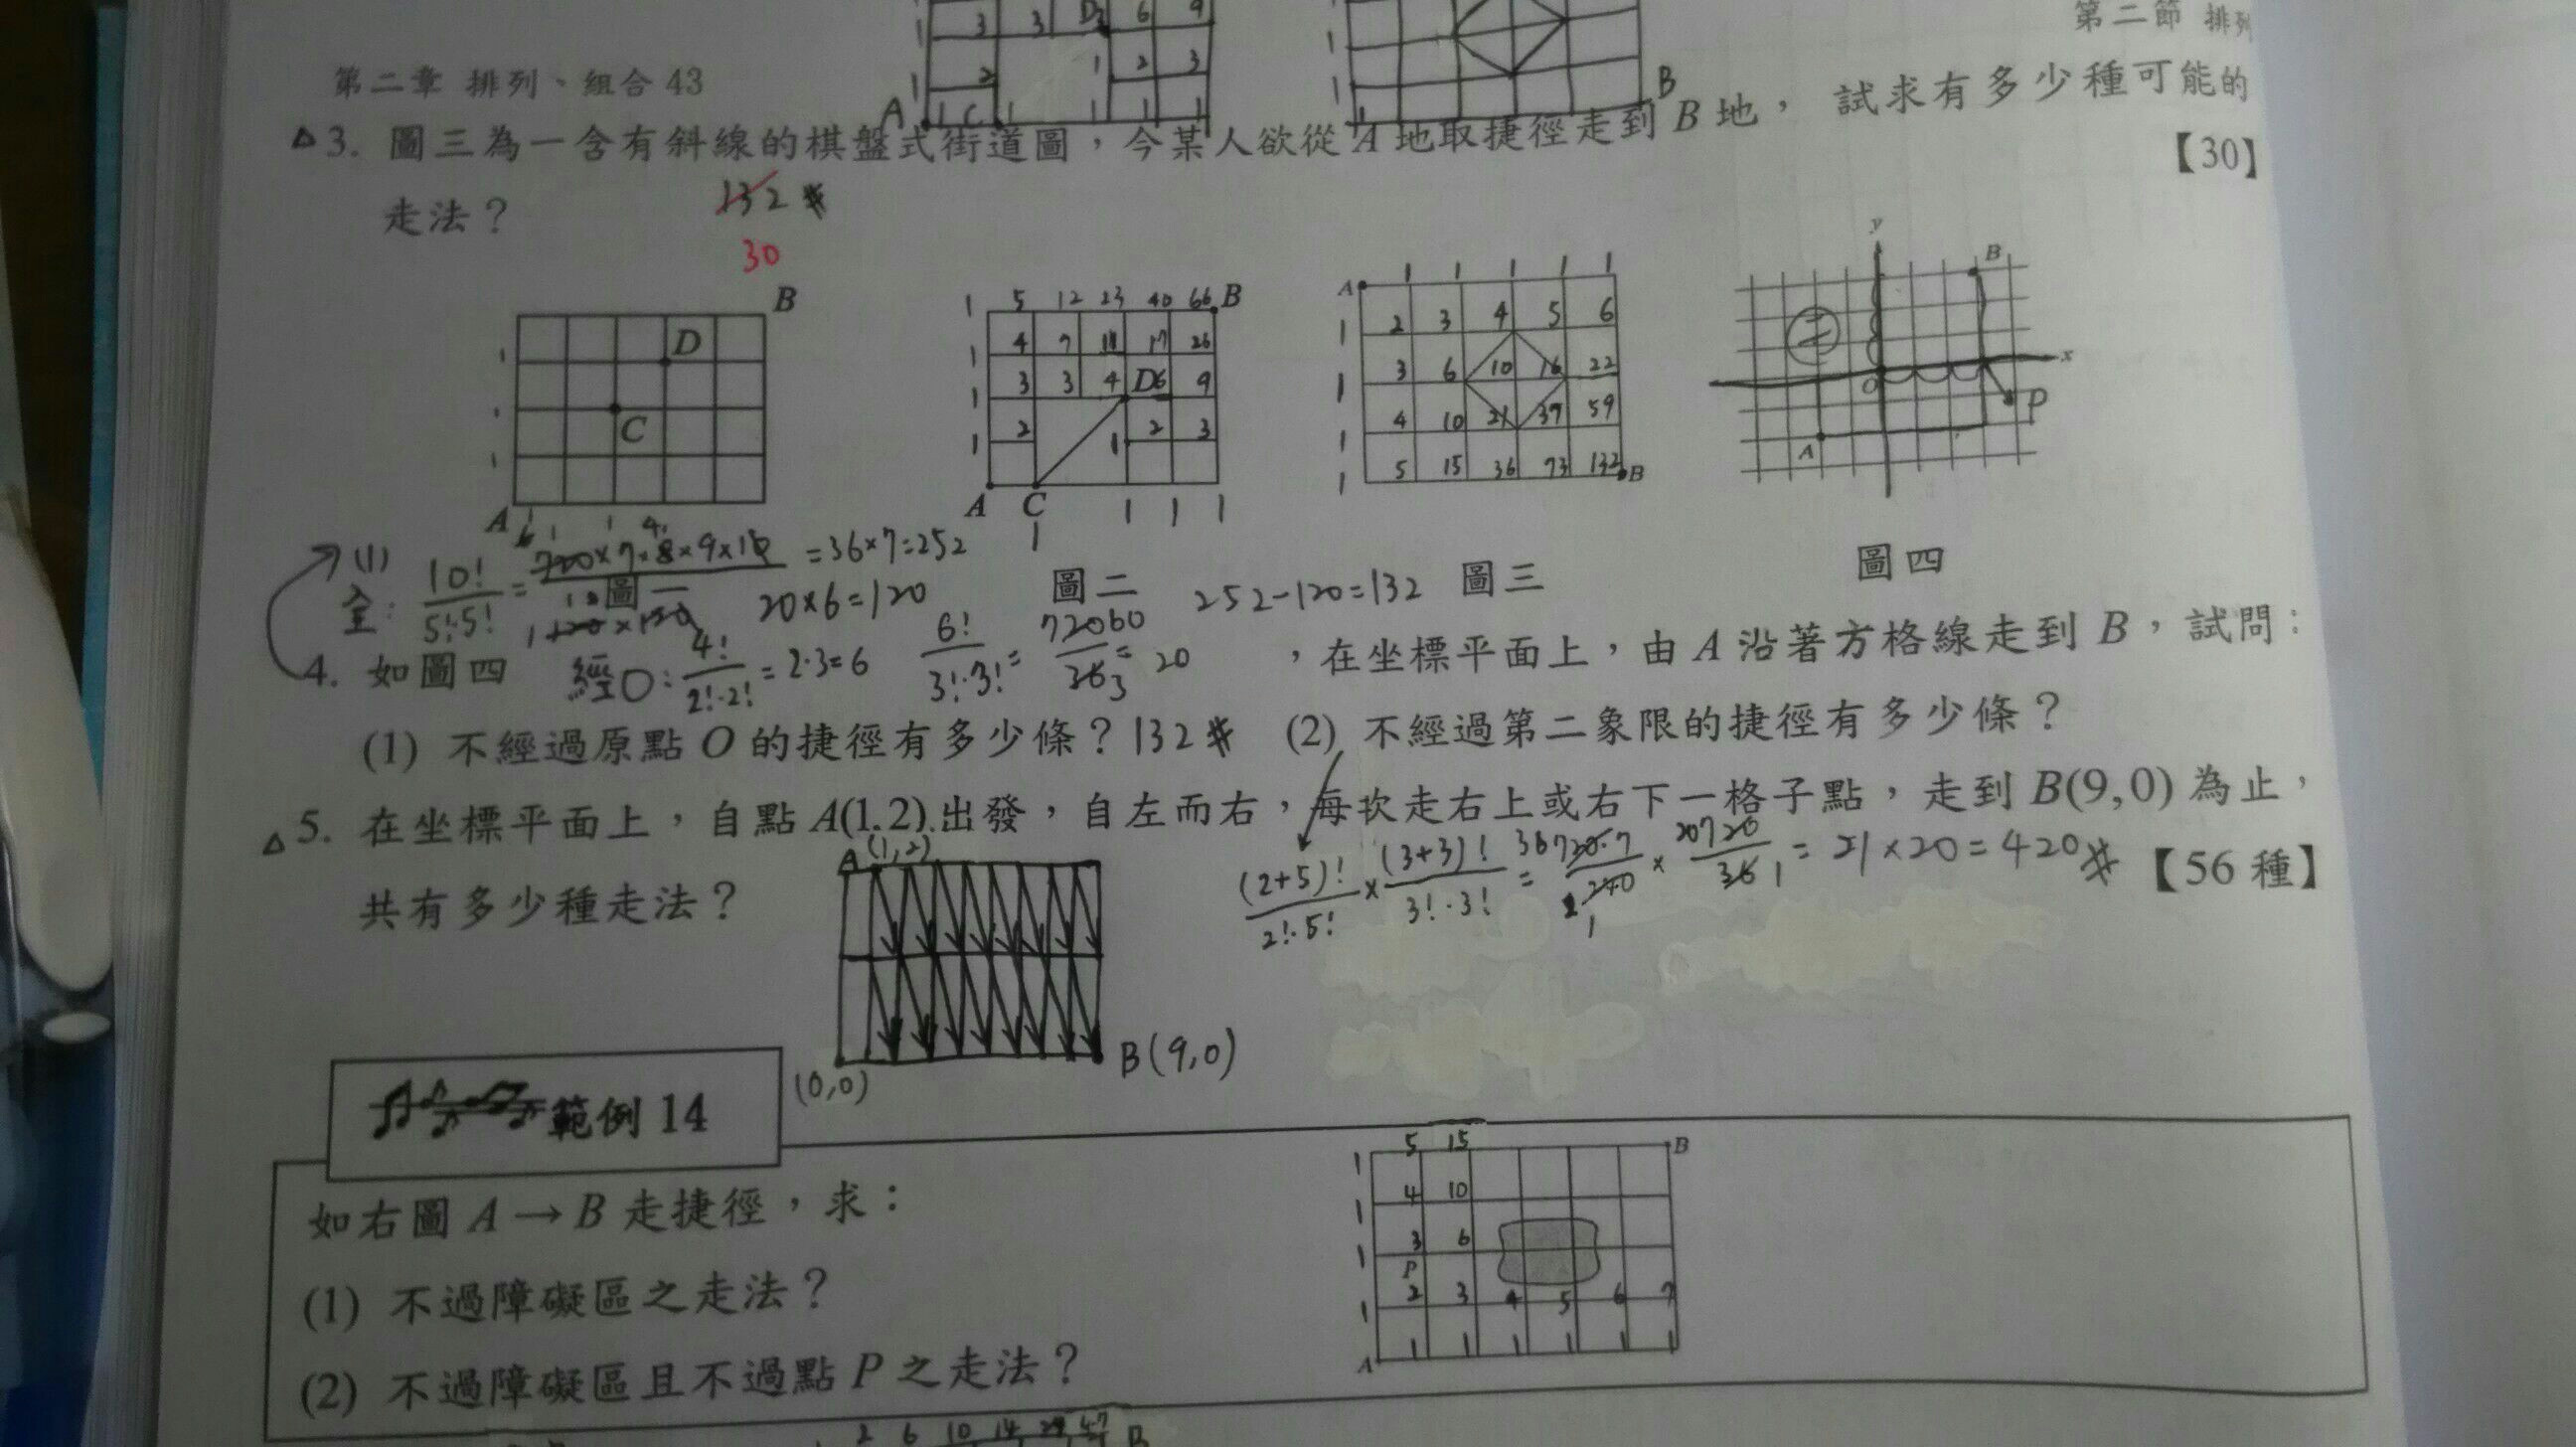 3 3 D 6 9
2 1 2 3
A 1 C 1 1 1 1
B
第二節 排列
第二章 排列、組合 43
△3. 圖三為一含有斜線的棋盤式街道圖,今某人欲從 A 地取捷徑走到 B 地, 試求有多少種可能的
走法? 132 【30】
30
B
D
C
A
1 5 12 23 40 66 B
1 4 7 11 17 26
1 3 3 4 D6 9
1 2 1 2 3
A C 1 1 1
1
A 1 1 1 1 1
1 2 3 4 5 6
1 3 6 10 16 22
1 4 10 21 37 59
1 5 15 36 73 132 B
y
B
二
x
O
P
A
圖一 圖二 圖三 圖四
(1)
全: 10!/5!·5! = 720×7×8×9×10/120×120 = 36×7=252
20×6=120 252-120=132
4. 如圖四 經O: 4!/2!·2! = 2·3=6 6!/3!·3! = 720/36 = 20 ,在坐標平面上,由 A 沿著方格線走到 B,試問:
(1) 不經過原點 O 的捷徑有多少條? 132 (2) 不經過第二象限的捷徑有多少條?
△5. 在坐標平面上,自點 A(1,2) 出發,自左而右,每次走右上或右下一格子點,走到 B(9,0) 為止,
共有多少種走法? 【56 種】
(2+5)!/2!·5! × (3+3)!/3!·3! = 720·7/240 × 720/36 = 21×20=420
A (1,2)
(0,0)
B(9,0)
範例 14
如右圖 A→B 走捷徑,求:
(1) 不過障礙區之走法?
(2) 不過障礙區且不過點 P 之走法?
1 5 15 B
1 4 10
1 3 6
P
1 2 3 4 5 6 7
A 1 1 1 1 1 1
2 6 10 14 47 B